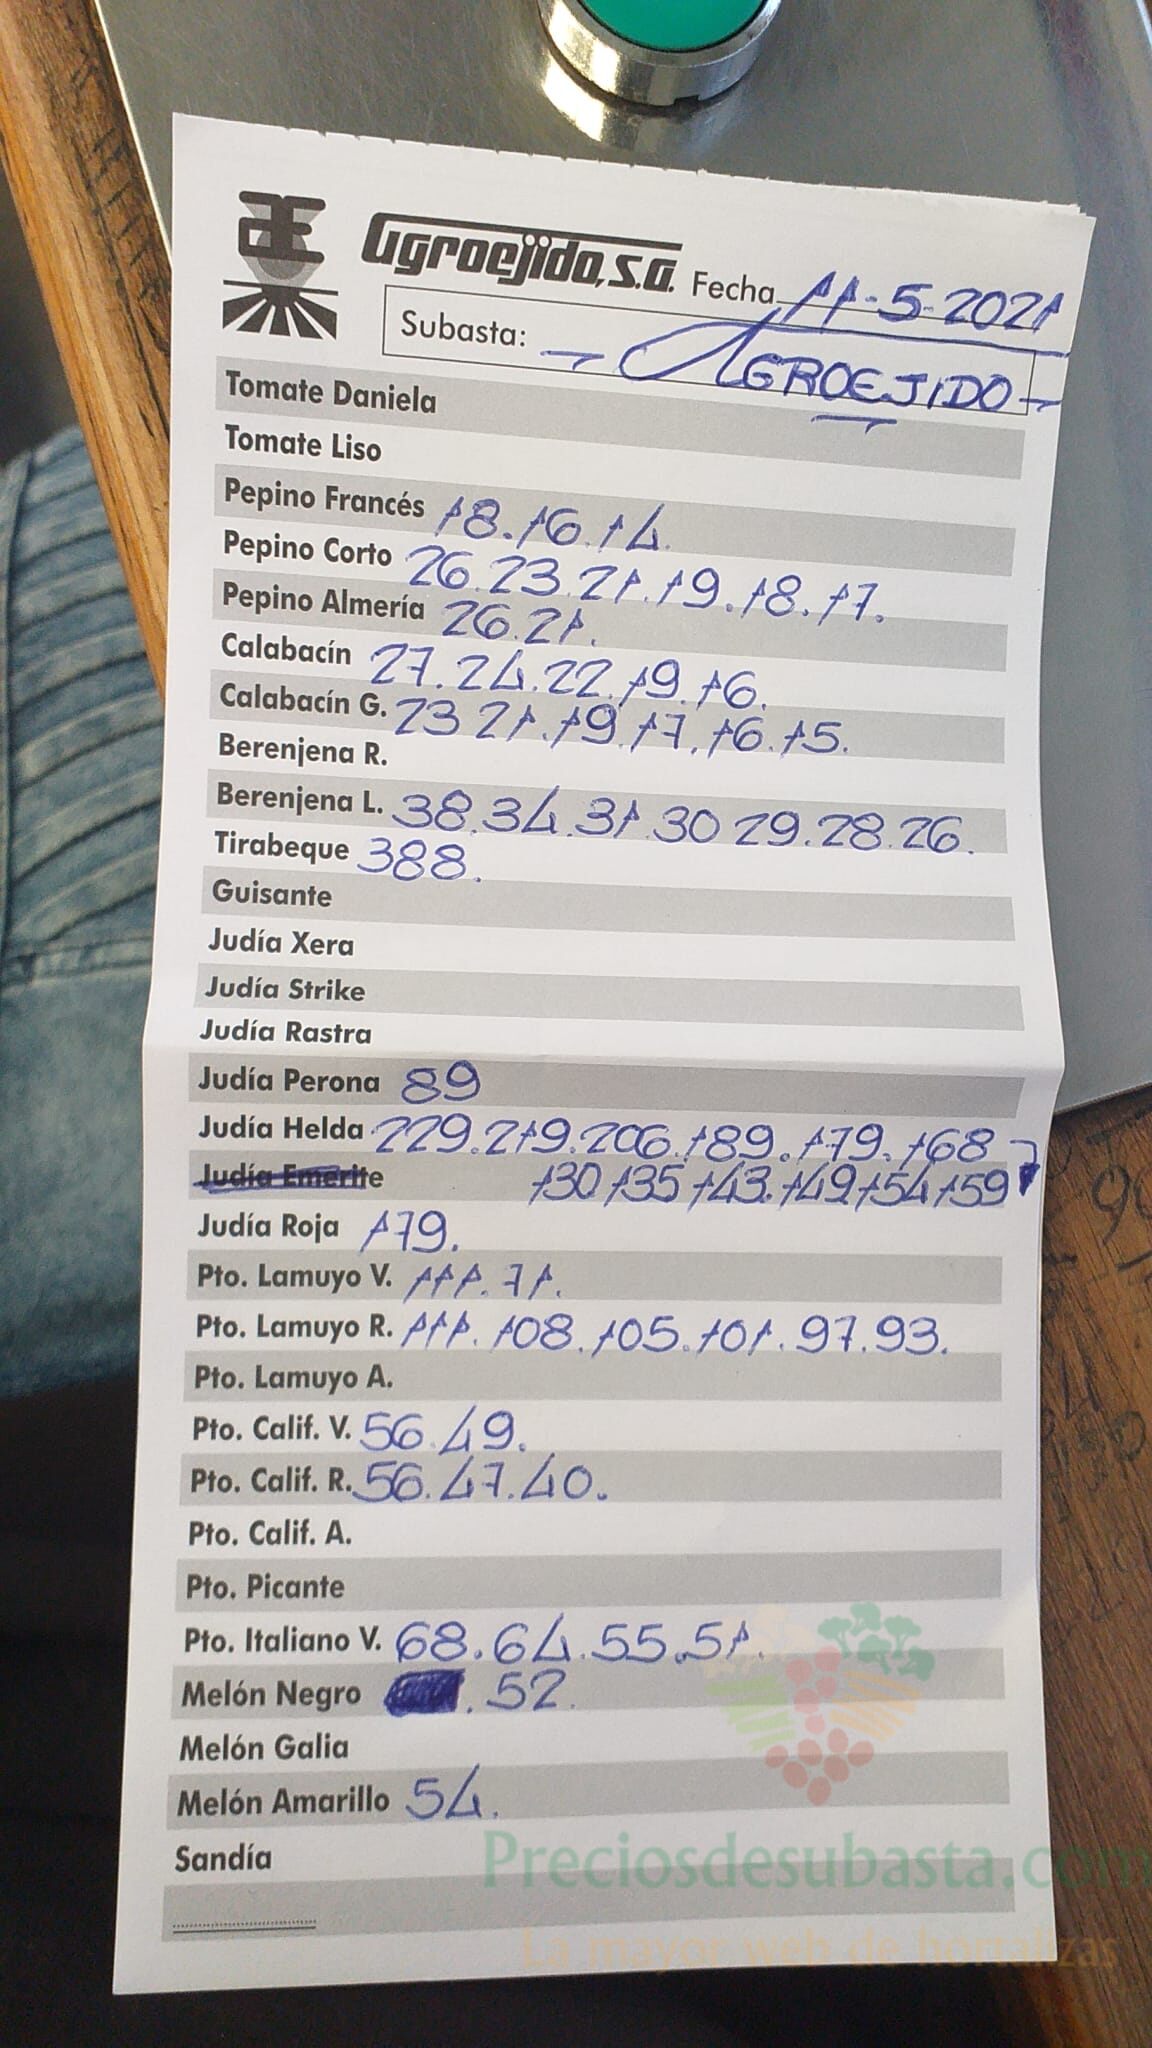 Agroejido, S.A. Fecha 11-5-2021
Subasta: - AGROEJIDO -
Tomate Daniela
Tomate Liso
Pepino Francés 18.16.14.
Pepino Corto 26.23.21.19.18.17.
Pepino Almería 26.21.
Calabacín 27.24.22.19.16.
Calabacín G. 23 21.19.17.16.15.
Berenjena R.
Berenjena L. 38.34.31.30 29.28.26.
Tirabeque 388.
Guisante
Judía Xera
Judía Strike
Judía Rastra
Judía Perona 89
Judía Helda 229.219.206.189.179.168
Judía Emerite 130 135 143.149 154 159
Judía Roja 179.
Pto. Lamuyo V. 111.71.
Pto. Lamuyo R. 111.108.105.101.97.93.
Pto. Lamuyo A.
Pto. Calif. V. 56.49.
Pto. Calif. R. 56.47.40.
Pto. Calif. A.
Pto. Picante
Pto. Italiano V. 68.64.55.51.
Melón Negro . 52.
Melón Galia
Melón Amarillo 54.
Sandía
Preciosdesubasta.com
La mayor web de hortalizas